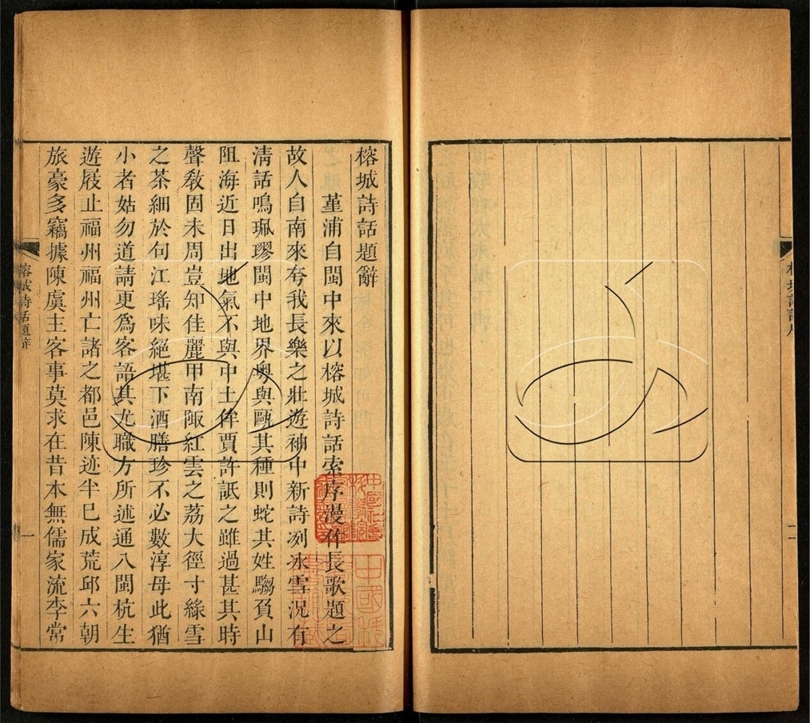 榕城詩話題辭
堇浦自閩中來以榕城詩話索序漫作長歌題之
故人自南來夸我長樂之壯遊袖中新詩冽冰雪況有
清話鳴珮璆閩中地界粵與甌其種則蛇其姓騶負山
阻海近日出地氣不與中土侔賈許詆之雖過甚其時
聲敎固未周豈知佳麗甲南陬紅雲之荔大徑寸綠雪
之茶細於旬江瑤味絕堪下酒膳珍不必數淳母此猶
小者姑勿道請更爲客語其尤職方所述通八閩杭生
遊屐止福州福州亡諸之都邑陳迹半已成荒邱六朝
旅豪多竊據陳虞主客事莫求在昔本無儒家流李常
榕城詩話題辭
一